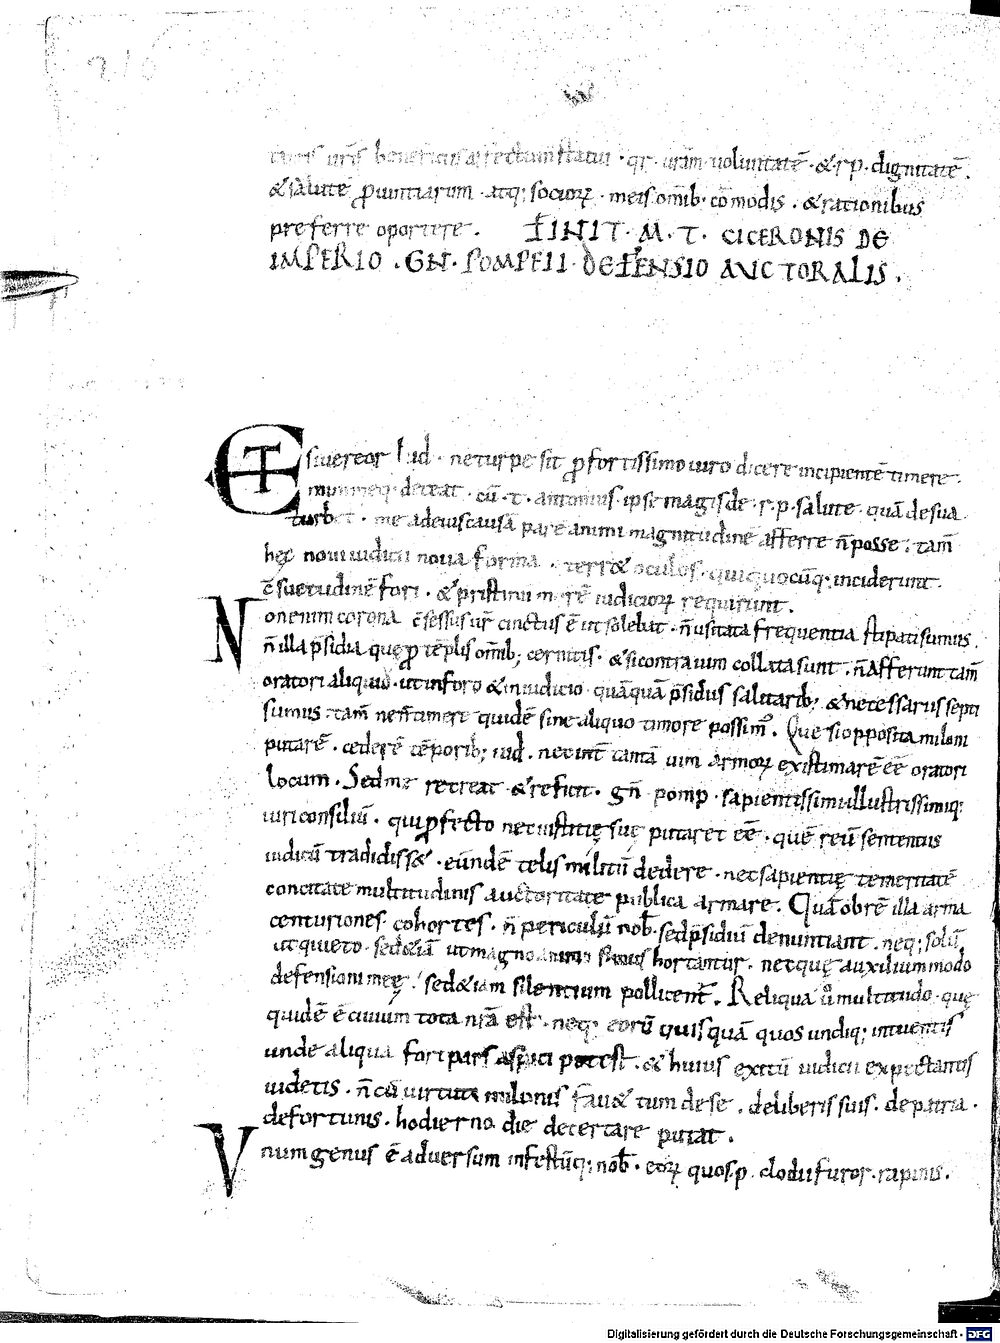 210
uris beneficiis affectum statui · qr · uram uoluntatē · & r p · dignitatē ·
& salute puintiarum · atq; socioꝝ · meis omib · cōmodis · & rationibus
preferre oportere . FINIT · M · T · CICERONIS DE
IMPERIO · GN · POMPEII · DEFENSIO AUCTORALIS .
ET si uereor Iud · ne turpe sit ꝓ fortissimo uiro dicere incipientē timere ·
minimeq · deceat · cū · t · annius · ipse magis de · r · p · salute · quā de sua
turbet · me ad eius causā parē animi magnitudinē afferre ñ posse · tam̄
hęc noui iudicii noua forma · terr& oculos · qui quocūq; inciderunt ·
c̄suetudinē fori · & pristinū m rē iudicioꝝ requirunt .
Non enim corona c̄sessus ur̄ cinctus ē ut solebat · ñ usitata frequentia stipati sumus ·
ñ illa p̄sidia que ꝓ tēplis omib; cernitis · & si contra uim collata sunt · ñ afferunt tam̄
oratori aliquid · ut in foro & in iudicio · quāquā p̄sidiis salutarib; & necessariis septi
sumus · tam̄ ne timere quidē sine aliquo timore possim᷒ . Que si opposita miloni
putarē · cederē tēporib; iud · nec int̄ tantā uim armoꝝ existimarē eē oratori
locum · Sed me recreat & reficit · gn̄ pomp · sapientissimi illustrissimiq;
uiri consiliū · qui ꝓfecto nec iustitię suę putaret eē · quē reū sententiis
iudicū tradidiss& · eūndē telis militū dedere · nec sapientię temeritatē
concitate multitudinis auctoritate publica armare . Quā obrē illa arma
centuriones · cohortes · ñ periculū nob̄ · sed p̄sidiū denuntiant · neq; solū
ut quieto · sed &iā ut magno animo simus hortantur · necque auxilium modo
defensioni meę · sed & iam silentium pollicent̄ . Reliqua ů multitudo · quę
quidē ē ciuium tota nr̄a est · neq; eorū quisquā quos undiq; intuentis
unde aliqua fori pars aspici potest · & huius exitū iudicii expectantis
uidetis · ñ cū uirtuti milonis fau& tum de se · de liberis suis · de patria ·
de fortunis · hodierno die decertare putat .
Vnum genus ē aduersum infestūq; nob̄ · eoꝝ quos · p · clodii furor · rapinis ·
Digitalisierung gefördert durch die Deutsche Forschungsgemeinschaft - DFG